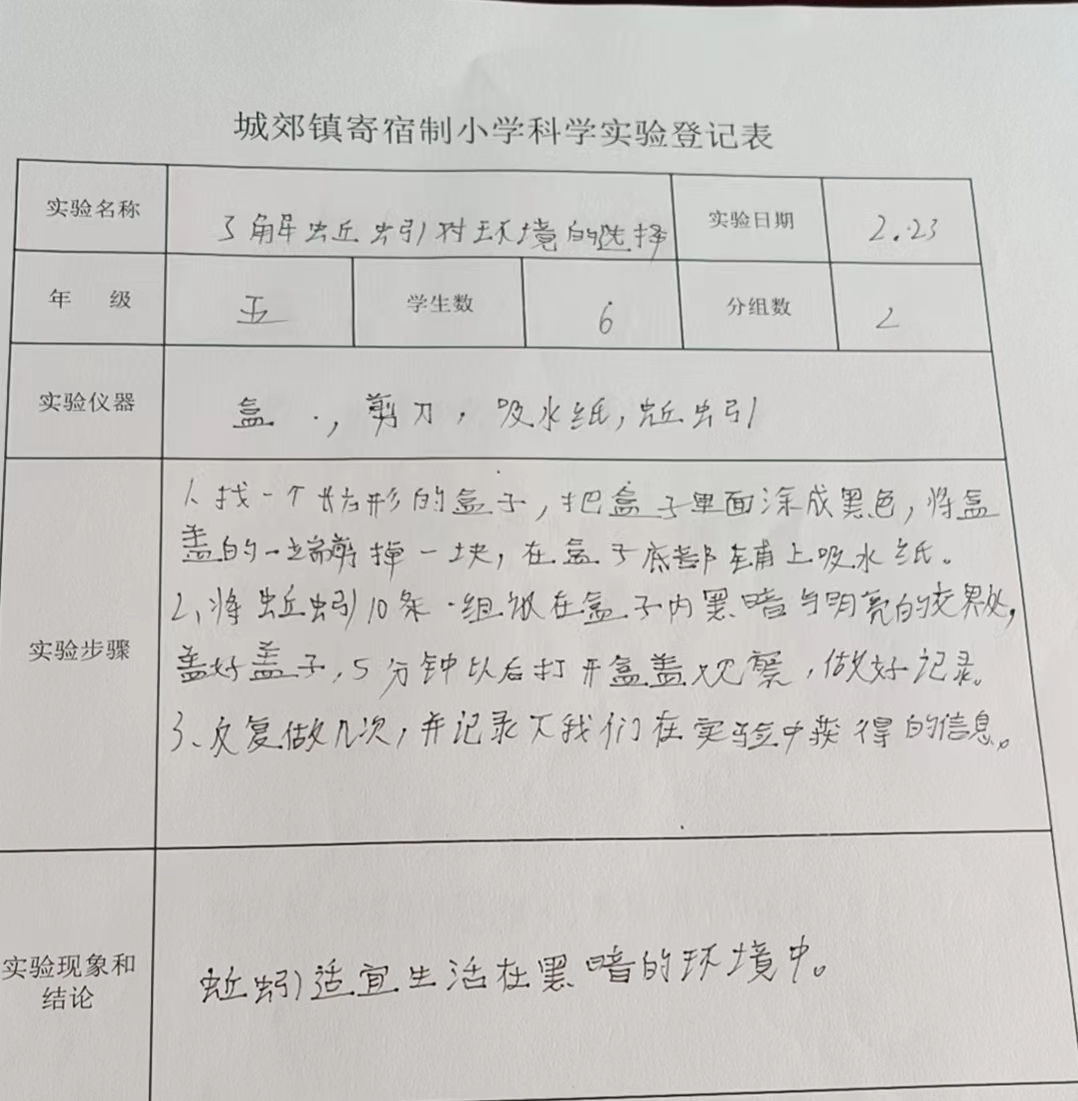 城郊镇寄宿制小学科学实验登记表
实验名称 了解蚯蚓对环境的选择 实验日期 2.23
年 级 五 学生数 6 分组数 2
实验仪器 盒 ., 剪刀, 吸水纸, 蚯蚓
实验步骤
1、找一个长方形的盒子,把盒子里面涂成黑色,将盒
盖的一端剪掉一块,在盒子底部铺上吸水纸。
2、将蚯蚓10条一组放在盒子内黑暗与明亮的交界处,
盖好盖子,5分钟以后打开盒盖观察,做好记录。
3、反复做几次,并记录下我们在实验中获得的信息。
实验现象和
结论
蚯蚓适宜生活在黑暗的环境中。